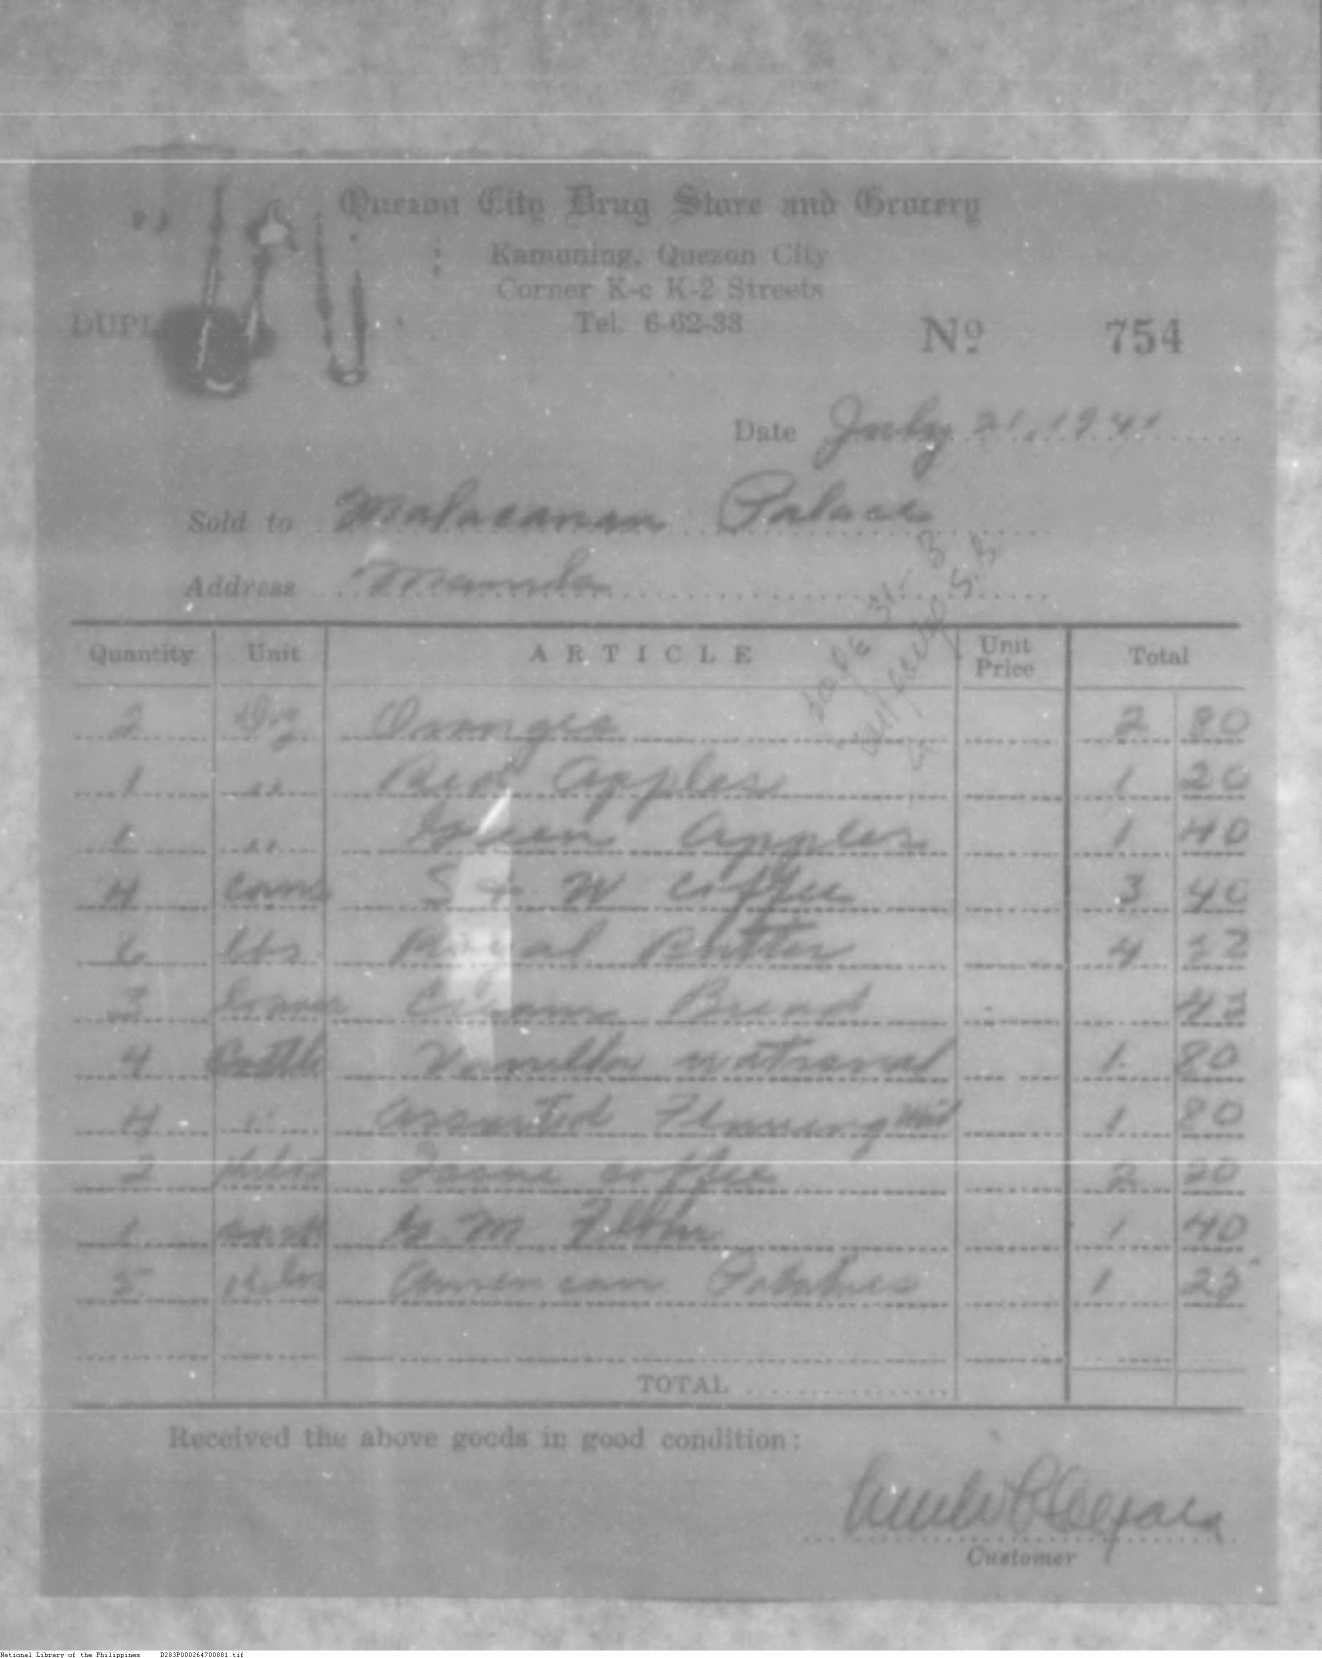 Quezon City Drug Store and Grocery
Kamuning, Quezon City
Corner K-c K-2 Streets
Tel. 6-62-33
DUPL
Nº 754
Date July 21, 1941
Sold to Malacanan Palace
Address Manila
Quantity Unit ARTICLE Unit Price Total
2 Dz Oranges 2 80
1 " Red Apples 1 20
1 " Green Apples 1 40
4 cans S & W coffee 3 40
6 lbs Royal Butter 4
3 Bread
4 Bottle Vanilla 1 80
4 " Assorted 1 80
2 Kilos coffee 2 20
1 G M 1 40
5 Kilos American Potatoes 1 25
TOTAL
Received the above goods in good condition:
Customer
National Library of the Philippines D283P000264700881.tif